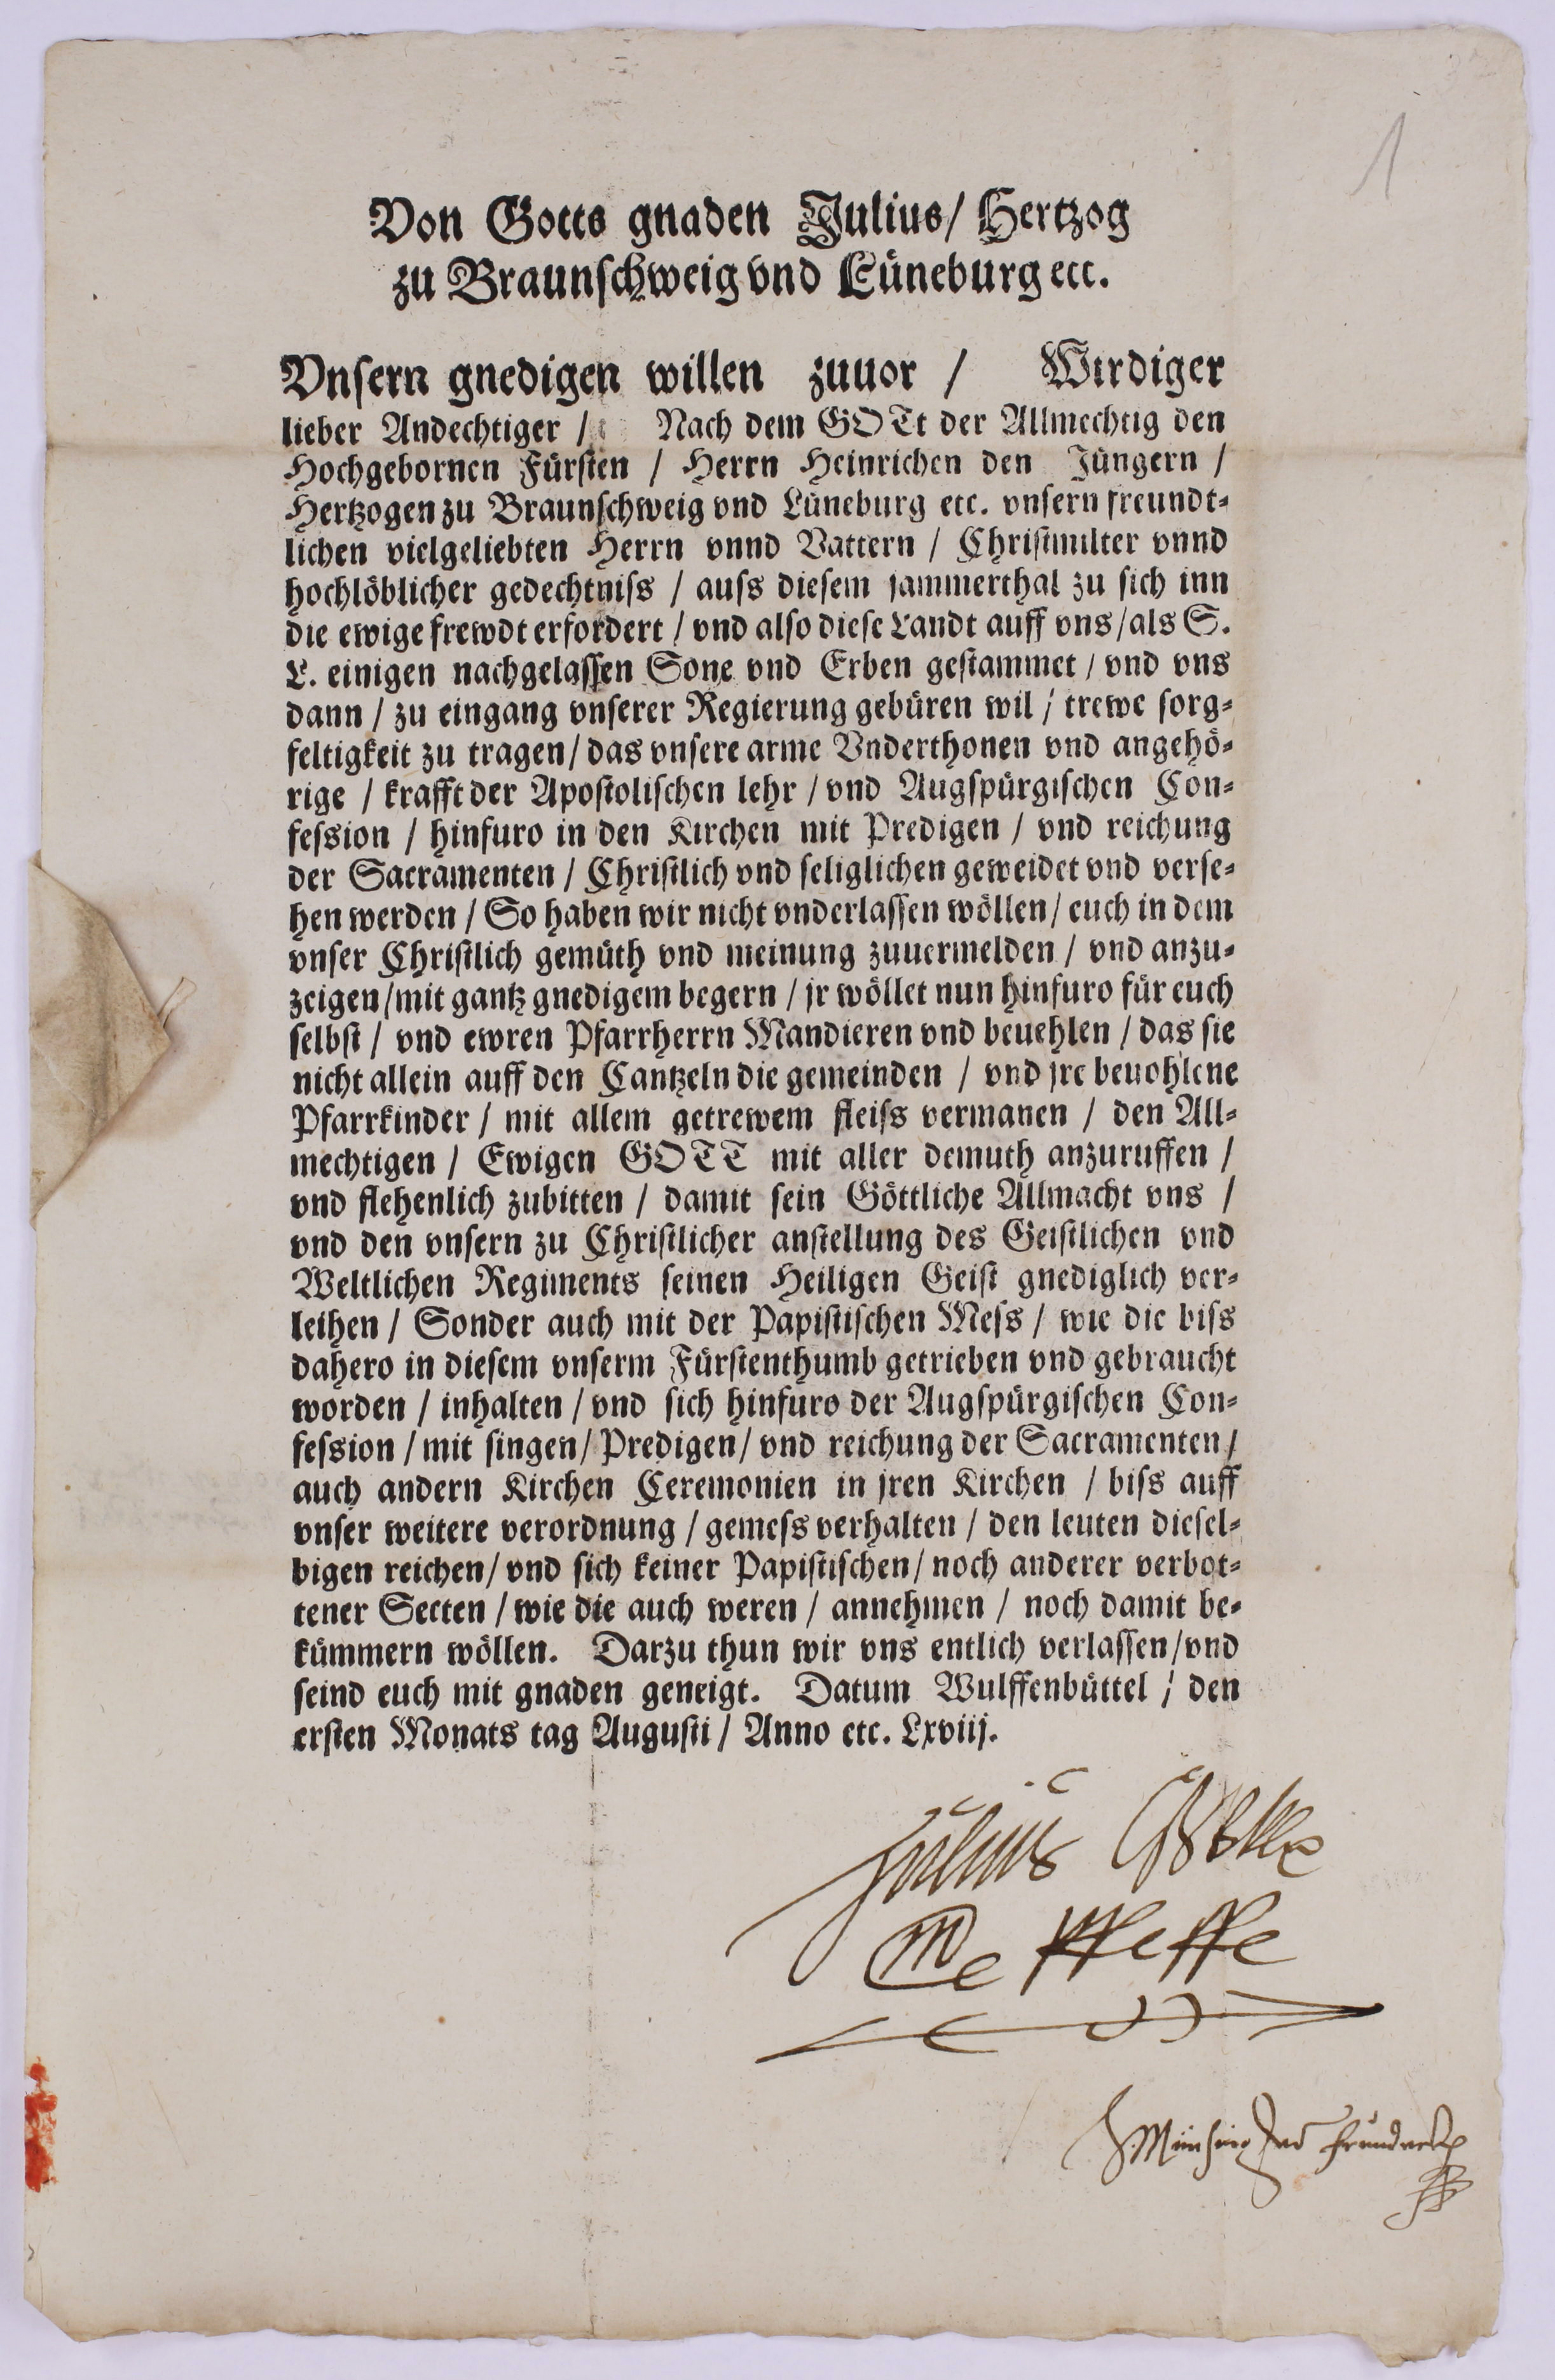 1
Von Gotts gnaden Julius/ Hertzog
zu Braunschweig vnd Lüneburg etc.
Vnsern gnedigen willen zuuor / Wirdiger
lieber Andechtiger / Nach dem GOTt der Allmechtig den
Hochgebornen Fürsten / Herrn Heinrichen den Jüngern /
Hertzogen zu Braunschweig vnd Lüneburg etc. vnsern freundt⸗
lichen vielgeliebten Herrn vnnd Vattern / Christmilter vnnd
hochlöblicher gedechtniss / auss diesem jammerthal zu sich inn
die ewige frewdt erfordert / vnd also diese Landt auff vns / als S.
L. einigen nachgelassen Sone vnd Erben gestammet / vnd vns
dann / zu eingang vnserer Regierung gebüren wil / trewe sorg⸗
feltigkeit zu tragen / das vnsere arme Vnderthonen vnd angehö⸗
rige / krafft der Apostolischen lehr / vnd Augspürgischen Con⸗
fession / hinfuro in den Kirchen mit Predigen / vnd reichung
der Sacramenten / Christlich vnd seliglichen geweidet vnd verse⸗
hen werden / So haben wir nicht vnderlassen wöllen / euch in dem
vnser Christlich gemüth vnd meinung zuuermelden / vnd anzu⸗
zeigen / mit gantz gnedigem begern / jr wöllet nun hinfuro für euch
selbst / vnd ewren Pfarrherrn Mandieren vnd beuehlen / das sie
nicht allein auff den Cantzeln die gemeinden / vnd jre beuohlene
Pfarrkinder / mit allem getrewem fleiss vermanen / den All⸗
mechtigen / Ewigen GOTT mit aller demuth anzuruffen /
vnd flehenlich zubitten / damit sein Göttliche Allmacht vns /
vnd den vnsern zu Christlicher anstellung des Geistlichen vnd
Weltlichen Regiments seinen Heiligen Geist gnediglich ver⸗
leihen / Sonder auch mit der Papistischen Mess / wie die biss
dahero in diesem vnserm Fürstenthumb getrieben vnd gebraucht
worden / inhalten / vnd sich hinfuro der Augspürgischen Con⸗
fession / mit singen / Predigen / vnd reichung der Sacramenten /
auch andern Kirchen Ceremonien in jren Kirchen / biss auff
vnser weitere verordnung / gemess verhalten / den leuten diesel⸗
bigen reichen / vnd sich keiner Papistischen / noch anderer verbot⸗
tener Secten / wie die auch weren / annehmen / noch damit be⸗
kümmern wöllen. Darzu thun wir vns entlich verlassen / vnd
seind euch mit gnaden geneigt. Datum Wulffenbüttel / den
ersten Monats tag Augusti / Anno etc. Lxviij.
Julius